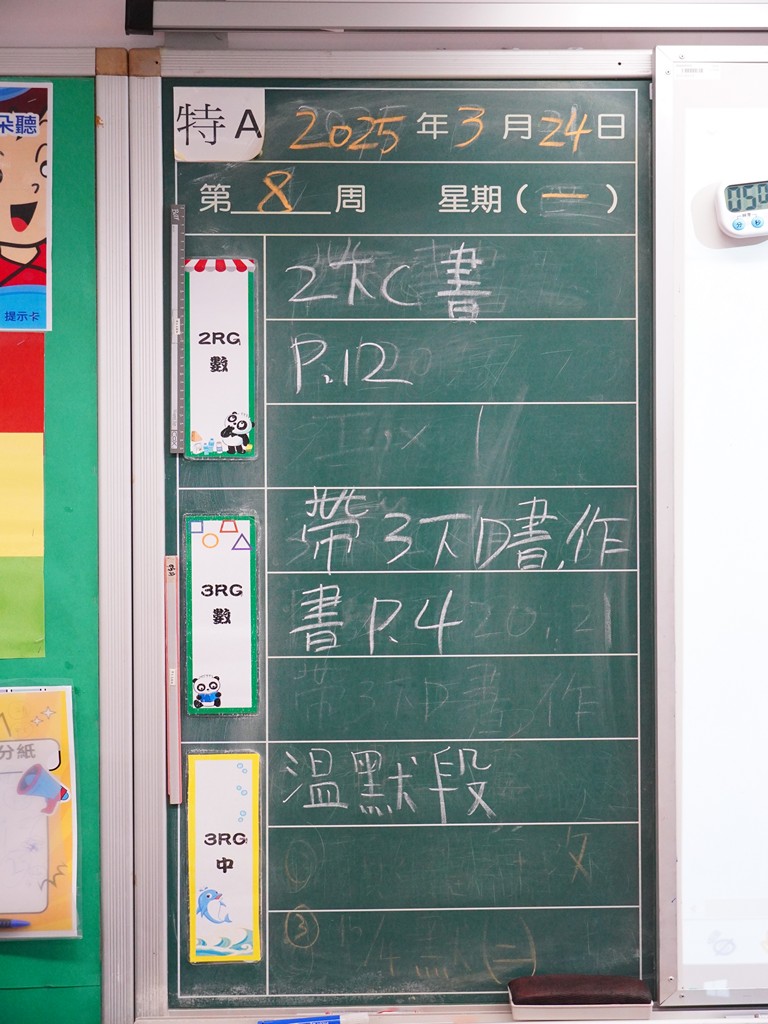 朵聽
提示卡
分紙
特 A
2025 年 3 月 24 日
第 8 周 星期 ( 一 )
2RG
數
2下C 書
P.12
3RG
數
帶 3下D書,作
書 P.4
20,21
3RG
中
溫默段
③
050